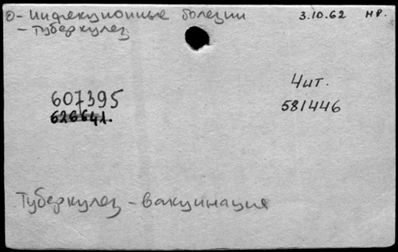 0- Инфекционные болезни 3.10.62 НР.
- Туберкулез
Чит.
607395 581446
626641.
Туберкулез - вакцинация